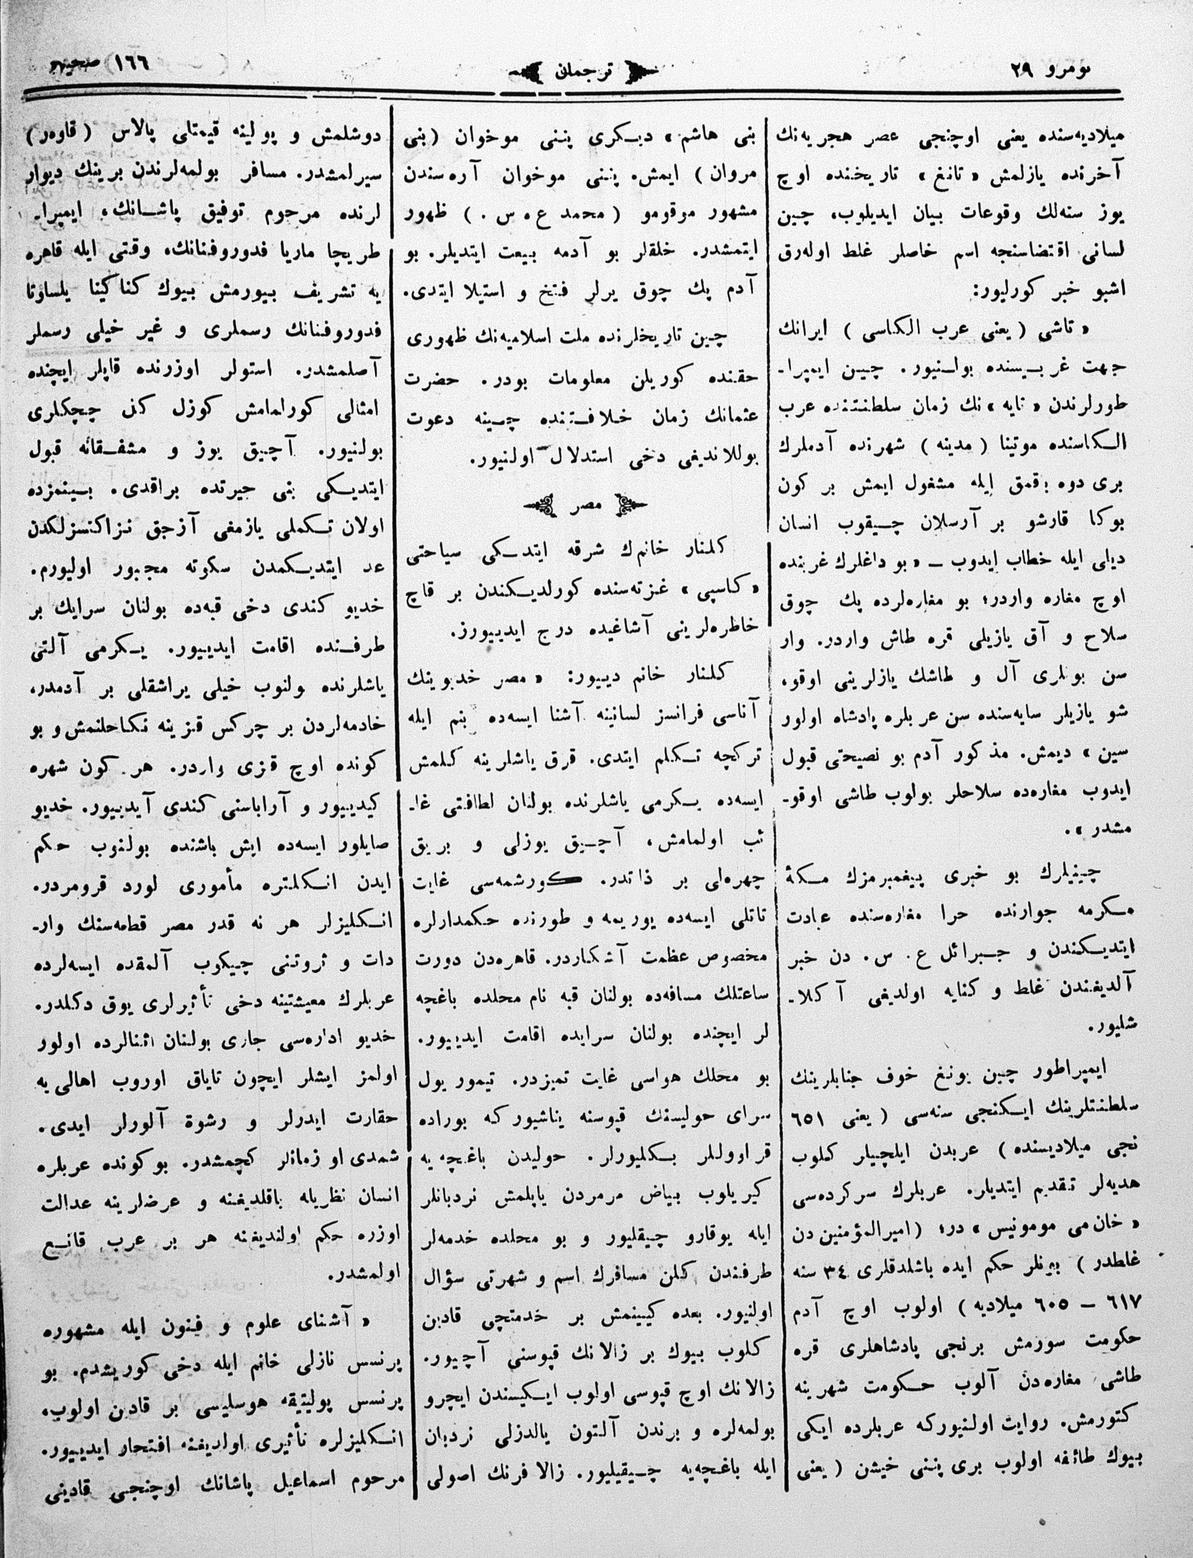 نومرو ٢٩
ترجمان
١٦٦ صحیفه
میلادیه‌سنده یعنی اوچنجی عصر هجریه‌نك
آخرنده یازلمش «تانغ» تاریخنده اوچ
یوز سنه‌لك وقوعات بیان ایدیلوب، چین
لسانی اقتضاسنجه اسم خاصلر غلط اوله‌رق
اشبو خبر كورلیور:
«تاشی (یعنی عرب الكاسی) ایرانك
جهت غربیسنده بولنیور. چین ایمپرا-
طورلرندن «تایه»نك زمان سلطنتنده عرب
الكاسنده موتینا (مدینه) شهرنده آدملرك
بری دوه باقمق ایله مشغول ایمش بر كون
بوكا قارشو بر آرسلان چیقوب انسان
دیلی ایله خطاب ایدوب – «بو داغلرك غربنده
اوچ مغاره واردر؛ بو مغاره‌لرده پك چوق
سلاح و آق یازیلی قره طاش واردر. وار
سن بونلری آل و طاشك یازلرینی اوقو،
شو یازیلر سایه‌سنده سن عربلره پادشاه اولور
سین» دیمش. مذكور آدم بو نصیحتی قبول
ایدوب مغاره‌ده سلاحلر بولوب طاشی اوقو-
مشدر».
چینیلرك بو خبری پیغمبرمزك مكهٔ
مكرمه جوارنده حرا مغاره‌سنده عبادت
ایتدیكندن و جبرائل ع. س. دن خبر
آلدیغندن غلط و كنایه اولدیغی آكلا-
شلیور.
ایمپراطور چین یونغ خوف جنابلرینك
سلطنتلرینك ایكنجی سنه‌سی (یعنی ٦٥١
نجی میلادیسنده) عربدن ایلچیلر كلوب
هدیه‌لر تقدیم ایتدیلر. عربلرك سركرده‌سی
«خان‌می مومونیس» در؛ (امیرالمؤمنین دن
غلطدر) بیونلر حكم ایده باشلدقلری ٣٤ سنه
٦١٧ – ٦٠٥ میلادیه) اولوب اوچ آدم
حكومت سورمش برنجی پادشاهلری قره
طاشی مغاره‌دن آلوب حكومت شهرینه
كتورمش. روایت اولنیوركه عربلرده ایكی
بیوك طائفه اولوب بری پننی خیشن (یعنی
بنی هاشم» دیكری پننی موخوان (بنی
مروان) ایمش. پننی موخوان آره‌سندن
مشهور موقومو (محمد ع. س.) ظهور
ایتمشدر. خلقلر بو آدمه بیعت ایتدیلر. بو
آدم پك چوق یرلر فتح و استیلا ایتدی.
چین تاریخلرنده ملت اسلامیه‌نك ظهوری
حقنده كوریلن معلومات بودر. حضرت
عثمانك زمان خلافتنده چینه دعوت
یوللاندیغی دخی استدلال اولنیور.
مصر
كلنار خانم‌ك شرقه ایتدیكی سیاحتی
«كاسپی» غزته‌سنده كورلدیكندن بر قاچ
خاطره‌لرینی آشاغیده درج ایدییورز.
كلنار خانم دییور: «مصر خدیوینك
آناسی فرانسز لسانینه آشنا ایسه‌ده بنم ایله
تركچه تكلم ایتدی. قرق یاشلرینه كلمش
ایسه‌ده یكرمی یاشلرنده بولنان لطافتی غا-
ئب اولمامش، آچیق یوزلی و بریق
چهره‌لی بر ذاتدر. كورشمه‌سی غایت
تاتلی ایسه‌ده یوریمه و طورنده حكمدارلره
مخصوص عظمت آشكاردر. قاهره‌دن دورت
ساعتلك مسافه‌ده بولنان قبه نام محلده باغچه
لر ایچنده بولنان سرایده اقامت ایدییور.
بو محلك هواسی غایت تمیزدر. تیمور یول
سرای حولیسنك قپوسنه یناشیوركه بوراده
قراووللر بكلیورلر. حولیدن باغچه‌یه
كیریلوب بیاض مرمردن یاپلمش نردبانلر
ایله یوقارو چیقلیور و بو محلده خدمه‌لر
طرفندن كلن مسافرك اسم و شهرتی سؤال
اولنیور. بعده كیینمش بر خدمتچی قادین
كلوب بیوك بر زالانك قپوسنی آچیور.
زالانك اوچ قپوسی اولوب ایكیسندن ایچرو
بولمه‌لره و برندن آلتون یالدزلی نردبان
ایله باغچه‌یه چیقیلیور. زالا فرنك اصولی
دوشلمش و پولینه قیمتلی پالاس (قاوەر)
سیرلمشدر. مسافر بولمه‌لرندن برینك دیوار
لرنده مرحوم توفیق پاشانك، ایمپرا-
طریچا ماریا فدوروفنانك، وقتی ایله قاهره
یه تشریف بیورمش بیوك كناگینا یلساوتا
فدوروفنانك رسملری و غیر خیلی رسملر
آصلمشدر. استولر اوزرنده قاپلر ایچنده
امثالی كورلمامش كوزل كل چیچكلری
بولنیور. آچیق یوز و مشفقانه قبول
ایتدیكی بنی حیرتده براقدی. بینمزده
اولان تكملی یازمغی آزجق نزاكتسزلكدن
عد ایتدیكمدن سكوته مجبور اولیورم.
خدیو كندی دخی قبه‌ده بولنان سرایك بر
طرفنده اقامت ایدییور. یكرمی آلتی
یاشلرنده بولنوب خیلی یراشقلی بر آدمدر،
خادمه‌لردن بر چركس قزینه نكاحلنمش و بو
كونده اوچ قزی واردر. هر كون شهره
كیدییور و آراباسنی كندی آیدییور. خدیو
صایلور ایسه‌ده ایش باشنده بولنوب حكم
ایدن انكلتره مأموری لورد قرومردر.
انكلیزلر هر نه قدر مصر قطعه‌سنك وار-
دات و ثروتنی چیكوب آلمقده ایسه‌لرده
عربلرك معیشتینه دخی تأثیرلری یوق دكلدر.
خدیو اداره‌سی جاری بولنان اثنالرده اولور
اولمز ایشلر ایچون تایاق اوروب اهالی‌یه
حقارت ایدرلر و رشوة آلورلر ایدی.
شمدی او زمانلر كچمشدر. بوكونده عربلره
انسان نظریله باقلدیغنه و عرضلرینه عدالت
اوزره حكم اولندیغنه هر بر عرب قانع
اولمشدر.
«آشنای علوم و فنون ایله مشهوره
پرنسس نازلی خانم ایله دخی كوریشدم. بو
پرنسس پولیتیقه هوسلیسی بر قادین اولوب،
انكلیزلره تأثیری اولدیغنه افتحار ایدییور.
مرحوم اسماعیل پاشانك اوچنجی قادینی